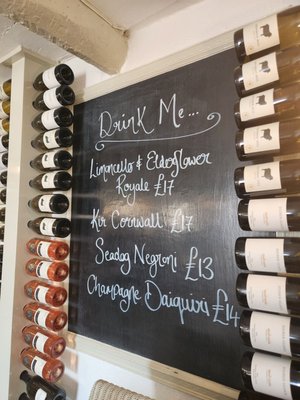 Drink Me...
Limoncello & Elderflower
Royale £17
Kir Cornwall £17
Seadog Negroni £13
Champagne Daiquiri £14